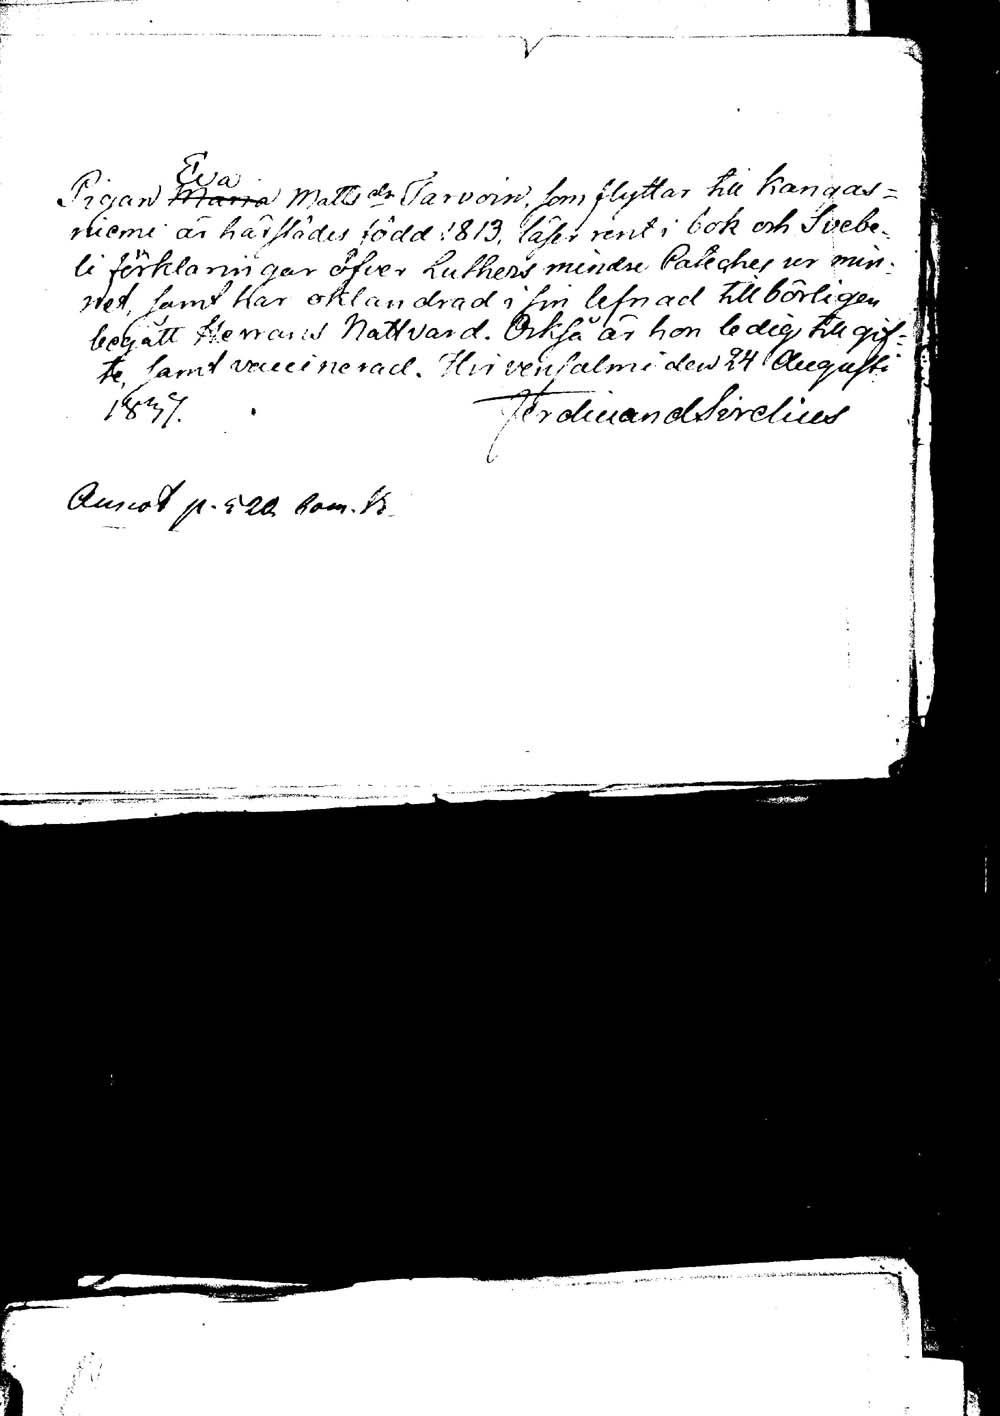 Eva
Pigan Maria Matts dr Tarvoin, som flyttar till Kangas=
niemi är härstädes född 1813, läser rent i bok och Svebe-
li förklaringar öfver Luthers mindre Cateches ur min-
net, samt har oklandrad i sin lefnad tillbörligen
begått Herrans Nattvard. Också är hon ledig till gif-
te, samt vaccinerad. Hirvensalmi den 24 Augusti
Ferdinand Sirelius
Annot p. 520